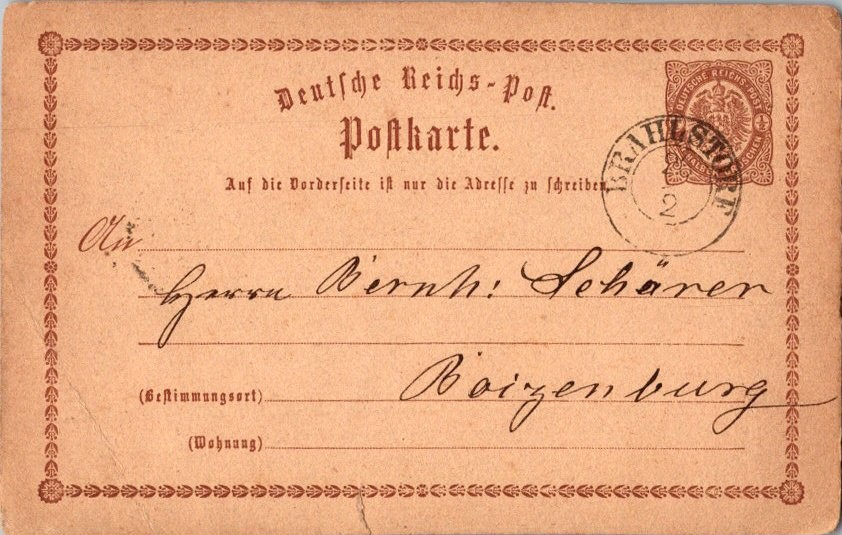 Deutsche Reichs-Post.
Postkarte.
DEUTSCHE REICHS-POST
1/2
BRAHLSTORF
2
Auf die Vorderseite ist nur die Adresse zu schreiben.
An
Herrn Bernh: Schärer
Boizenburg
(Bestimmungsort)
(Wohnung)